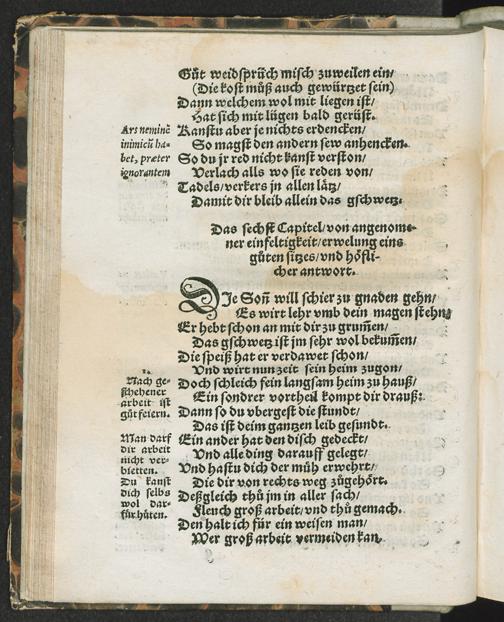 Güt weidsprüch misch zuweilen ein/
(Die kost müß auch gewürtzet sein)
Dann welchem wol mit liegen ist/
Hat sich mit lügen bald gerüst.
Ars neminē
inimicū ha-
bet, præter
ignorantem
Kanstu aber je nichts erdencken/
So magst den andern sew anhencken.
So du jr red nicht kanst verston/
Verlach alls wo sie reden von/
Tadels/verkers in allen lätz/
Damit dir bleib allein das gschwetz.
Das sechst Capitel/von angenome-
ner einfeltigkeit/erwelung eins
güten sitzes/vnd höfli-
cher antwort.
DIe Son̄ will schier zu gnaden gehn/
Es wirt lehr vmb dein magen stehn/
Er hebt schon an mit dir zu grum̄en/
Das gschwetz ist jm sehr wol bekum̄en/
Die speiß hat er verdawet schon/
Vnd wirt nun zeit sein heim zugon/
Nach ge-
schehener
arbeit ist
güt feiern.
Doch schleich fein langsam heim zu hauß/
Ein sondrer vortheil kompt dir drauß:
Dann so du vbergest die stundt/
Das ist deim gantzen leib gesundt.
Man darf
dir arbeit
nicht ver-
bietten.
Du kanst
dich selbs
wol dar-
für hüten.
Ein ander hat den disch gedeckt/
Vnd alle ding darauff gelegt/
Vnd hastu dich der müh erwehrt/
Die dir von rechts weg zügehört.
Deßgleich thü jm in aller sach/
Fleuch groß arbeit/vnd thü gemach.
Den halt ich für ein weisen man/
Wer groß arbeit vermeiden kan.